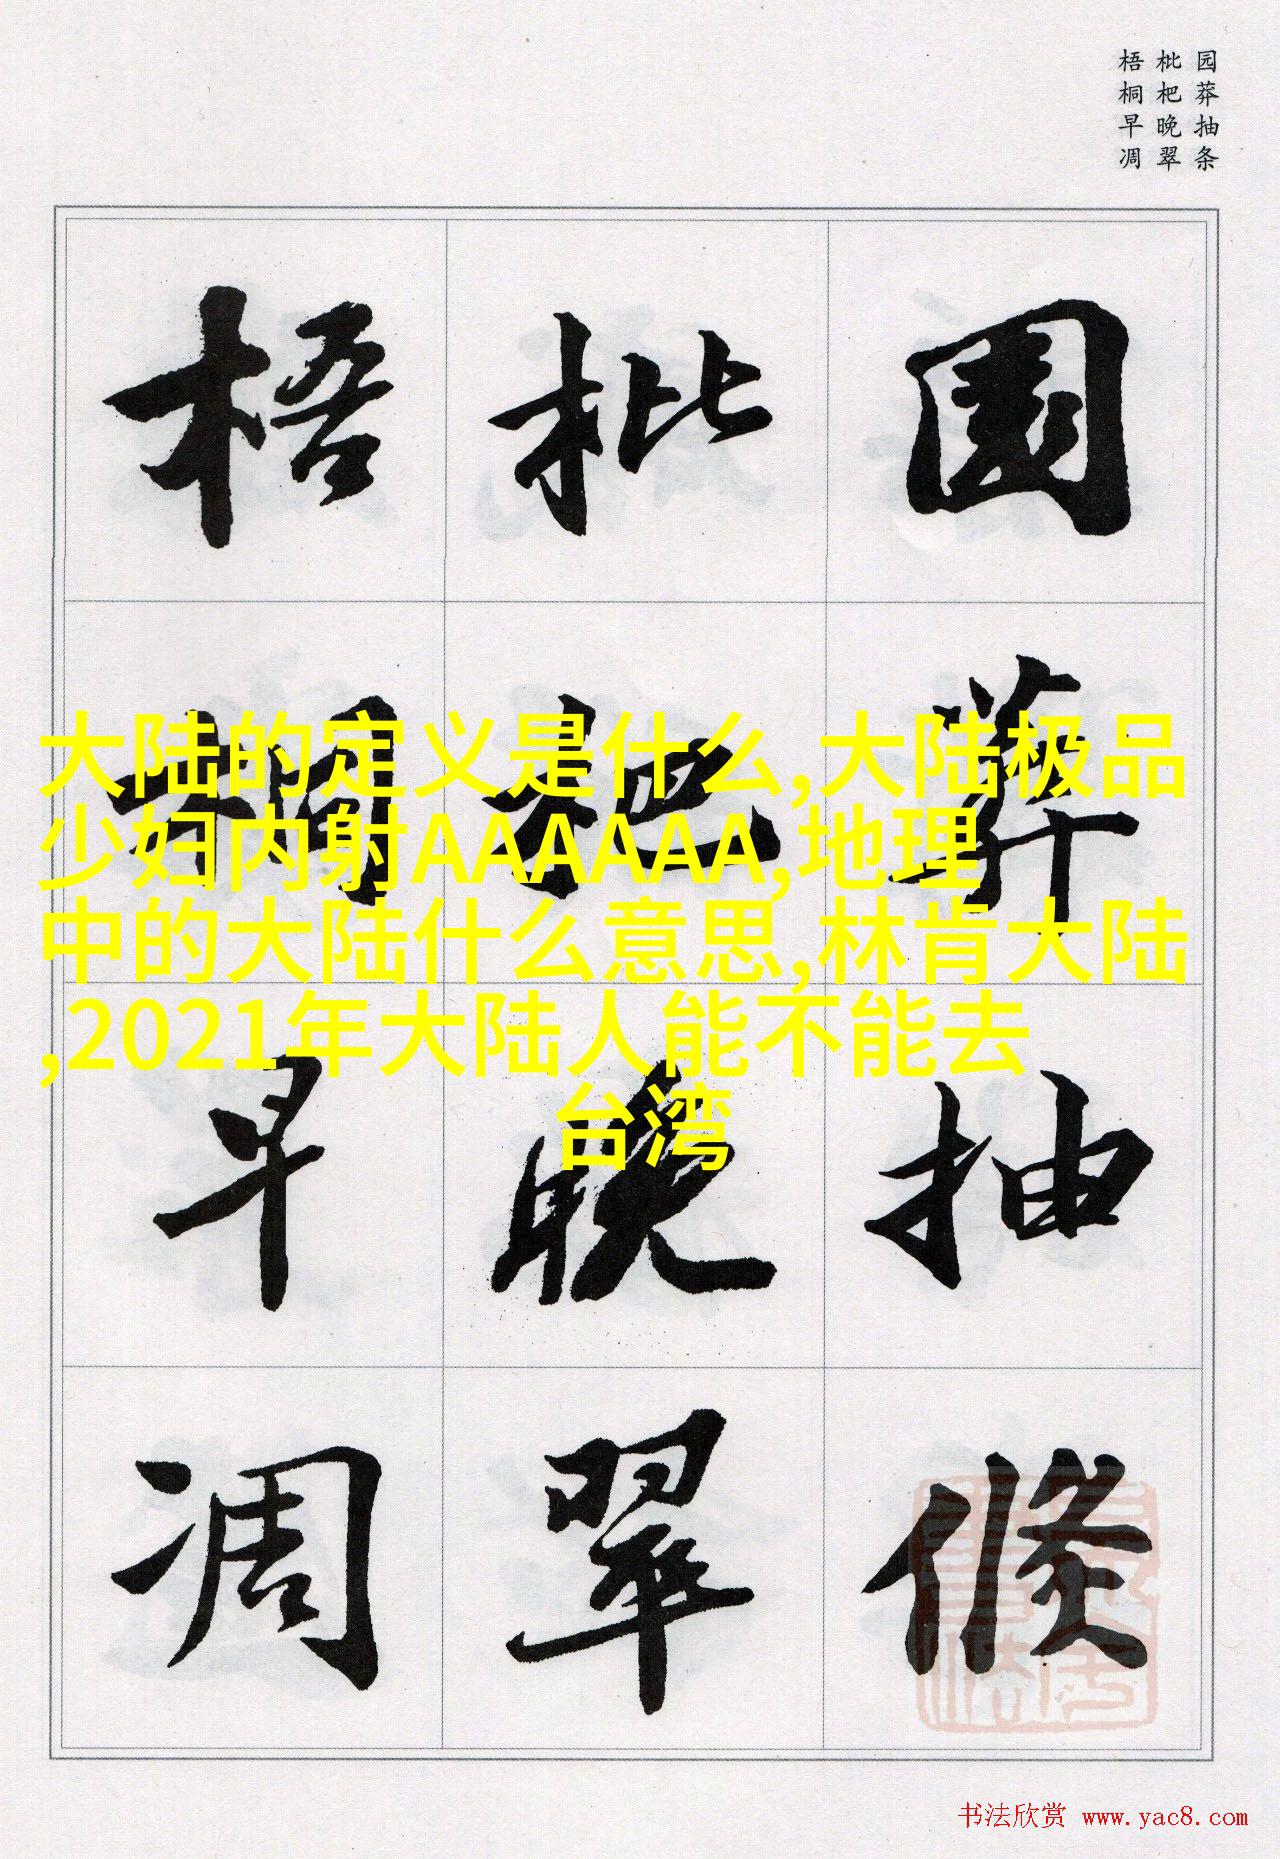 园莽抽条
枇杷晚翠
梧桐早凋
園莽抽條
枇杷晚翠
梧桐早凋
大陆的定义是什么,大陆极品
少妇内射AAAAAAA,地理
中的大陆什么意思,林肯大陆
,2021年大陆人能不能去
台湾
书法欣赏 www.yac8.com